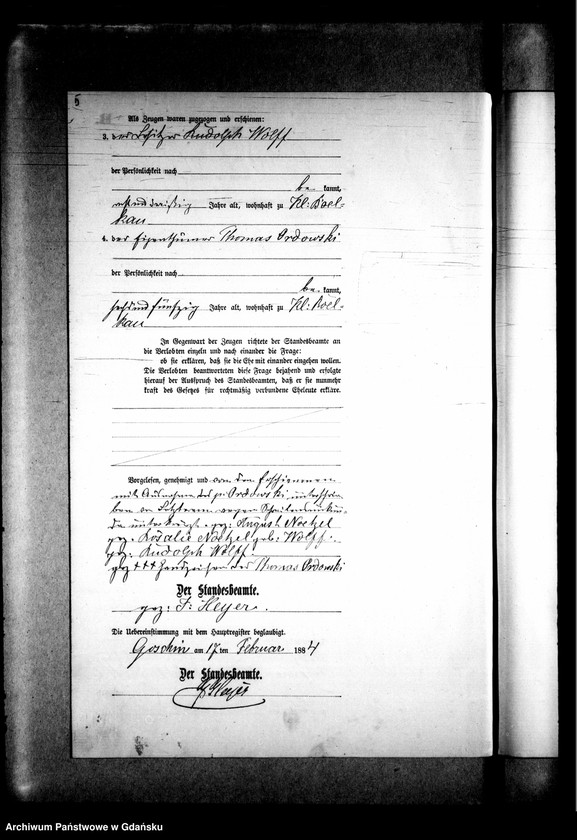 5
Als Zeugen waren zugezogen und erschienen:
3. der Besitzer Rudolph Wolff
der Persönlichkeit nach
be kannt,
Jahre alt, wohnhaft zu Kl: Boel=
kau
4. der Eigenthümer Thomas Ordowski
der Persönlichkeit nach
be kannt,
sechsundfünfzig Jahre alt, wohnhaft zu Kl: Boel=
kau
In Gegenwart der Zeugen richtete der Standesbeamte an
die Verlobten einzeln und nach einander die Frage:
ob sie erklären, daß sie die Ehe mit einander eingehen wollen.
Die Verlobten beantworteten diese Frage bejahend und erfolgte
hierauf der Ausspruch des Standesbeamten, daß er sie nunmehr
kraft des Gesetzes für rechtmäßig verbundene Eheleute erkläre.
Vorgelesen, genehmigt und von den Erschienenen
mit Ausnahme des p. Ordowski, unterschrie-
ben von Letzterem wegen Schreibensunkun-
de unterkreuzt. gez: August Noetzel
gez. Rosalie Noetzel geb: Wolff.
gez: Rudolph Wolff.
gez +++ Handzeichen des Thomas Ordowski
Der Standesbeamte.
gez: F: Heyer.
Die Uebereinstimmung mit dem Hauptregister beglaubigt.
Goschin am 17ten Februar 1884
Der Standesbeamte.
F Heyer
Archiwum Państwowe w Gdańsku